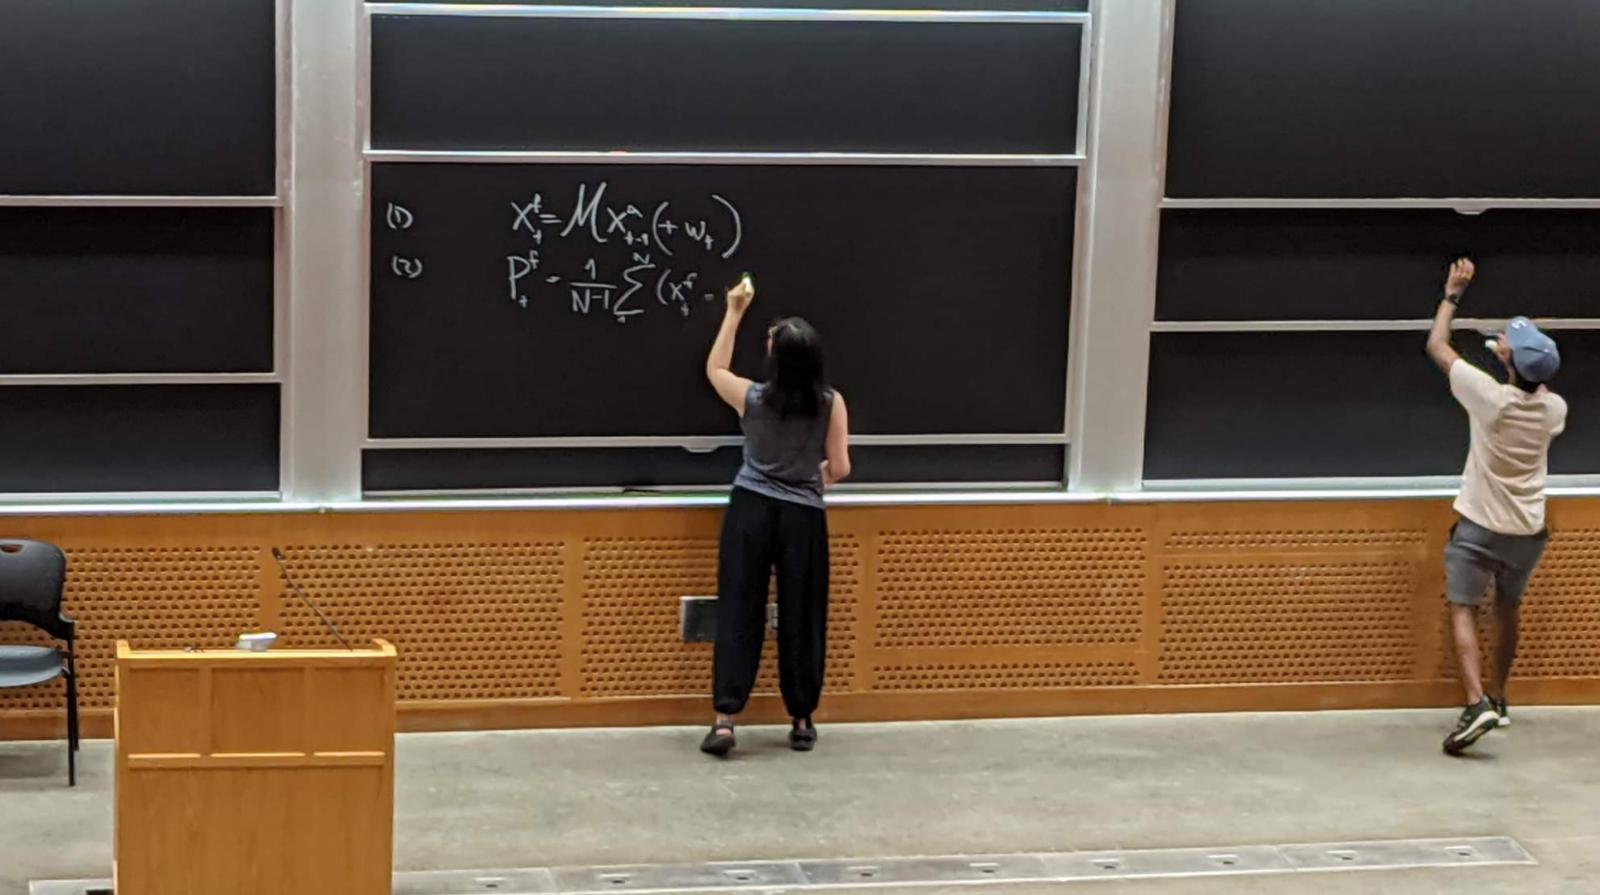 (1) X_t^f = M X_{t-1}^a (+ w_t)
(2) P_t^f = 1/(N-1) Σ_1^N (X_t^f -